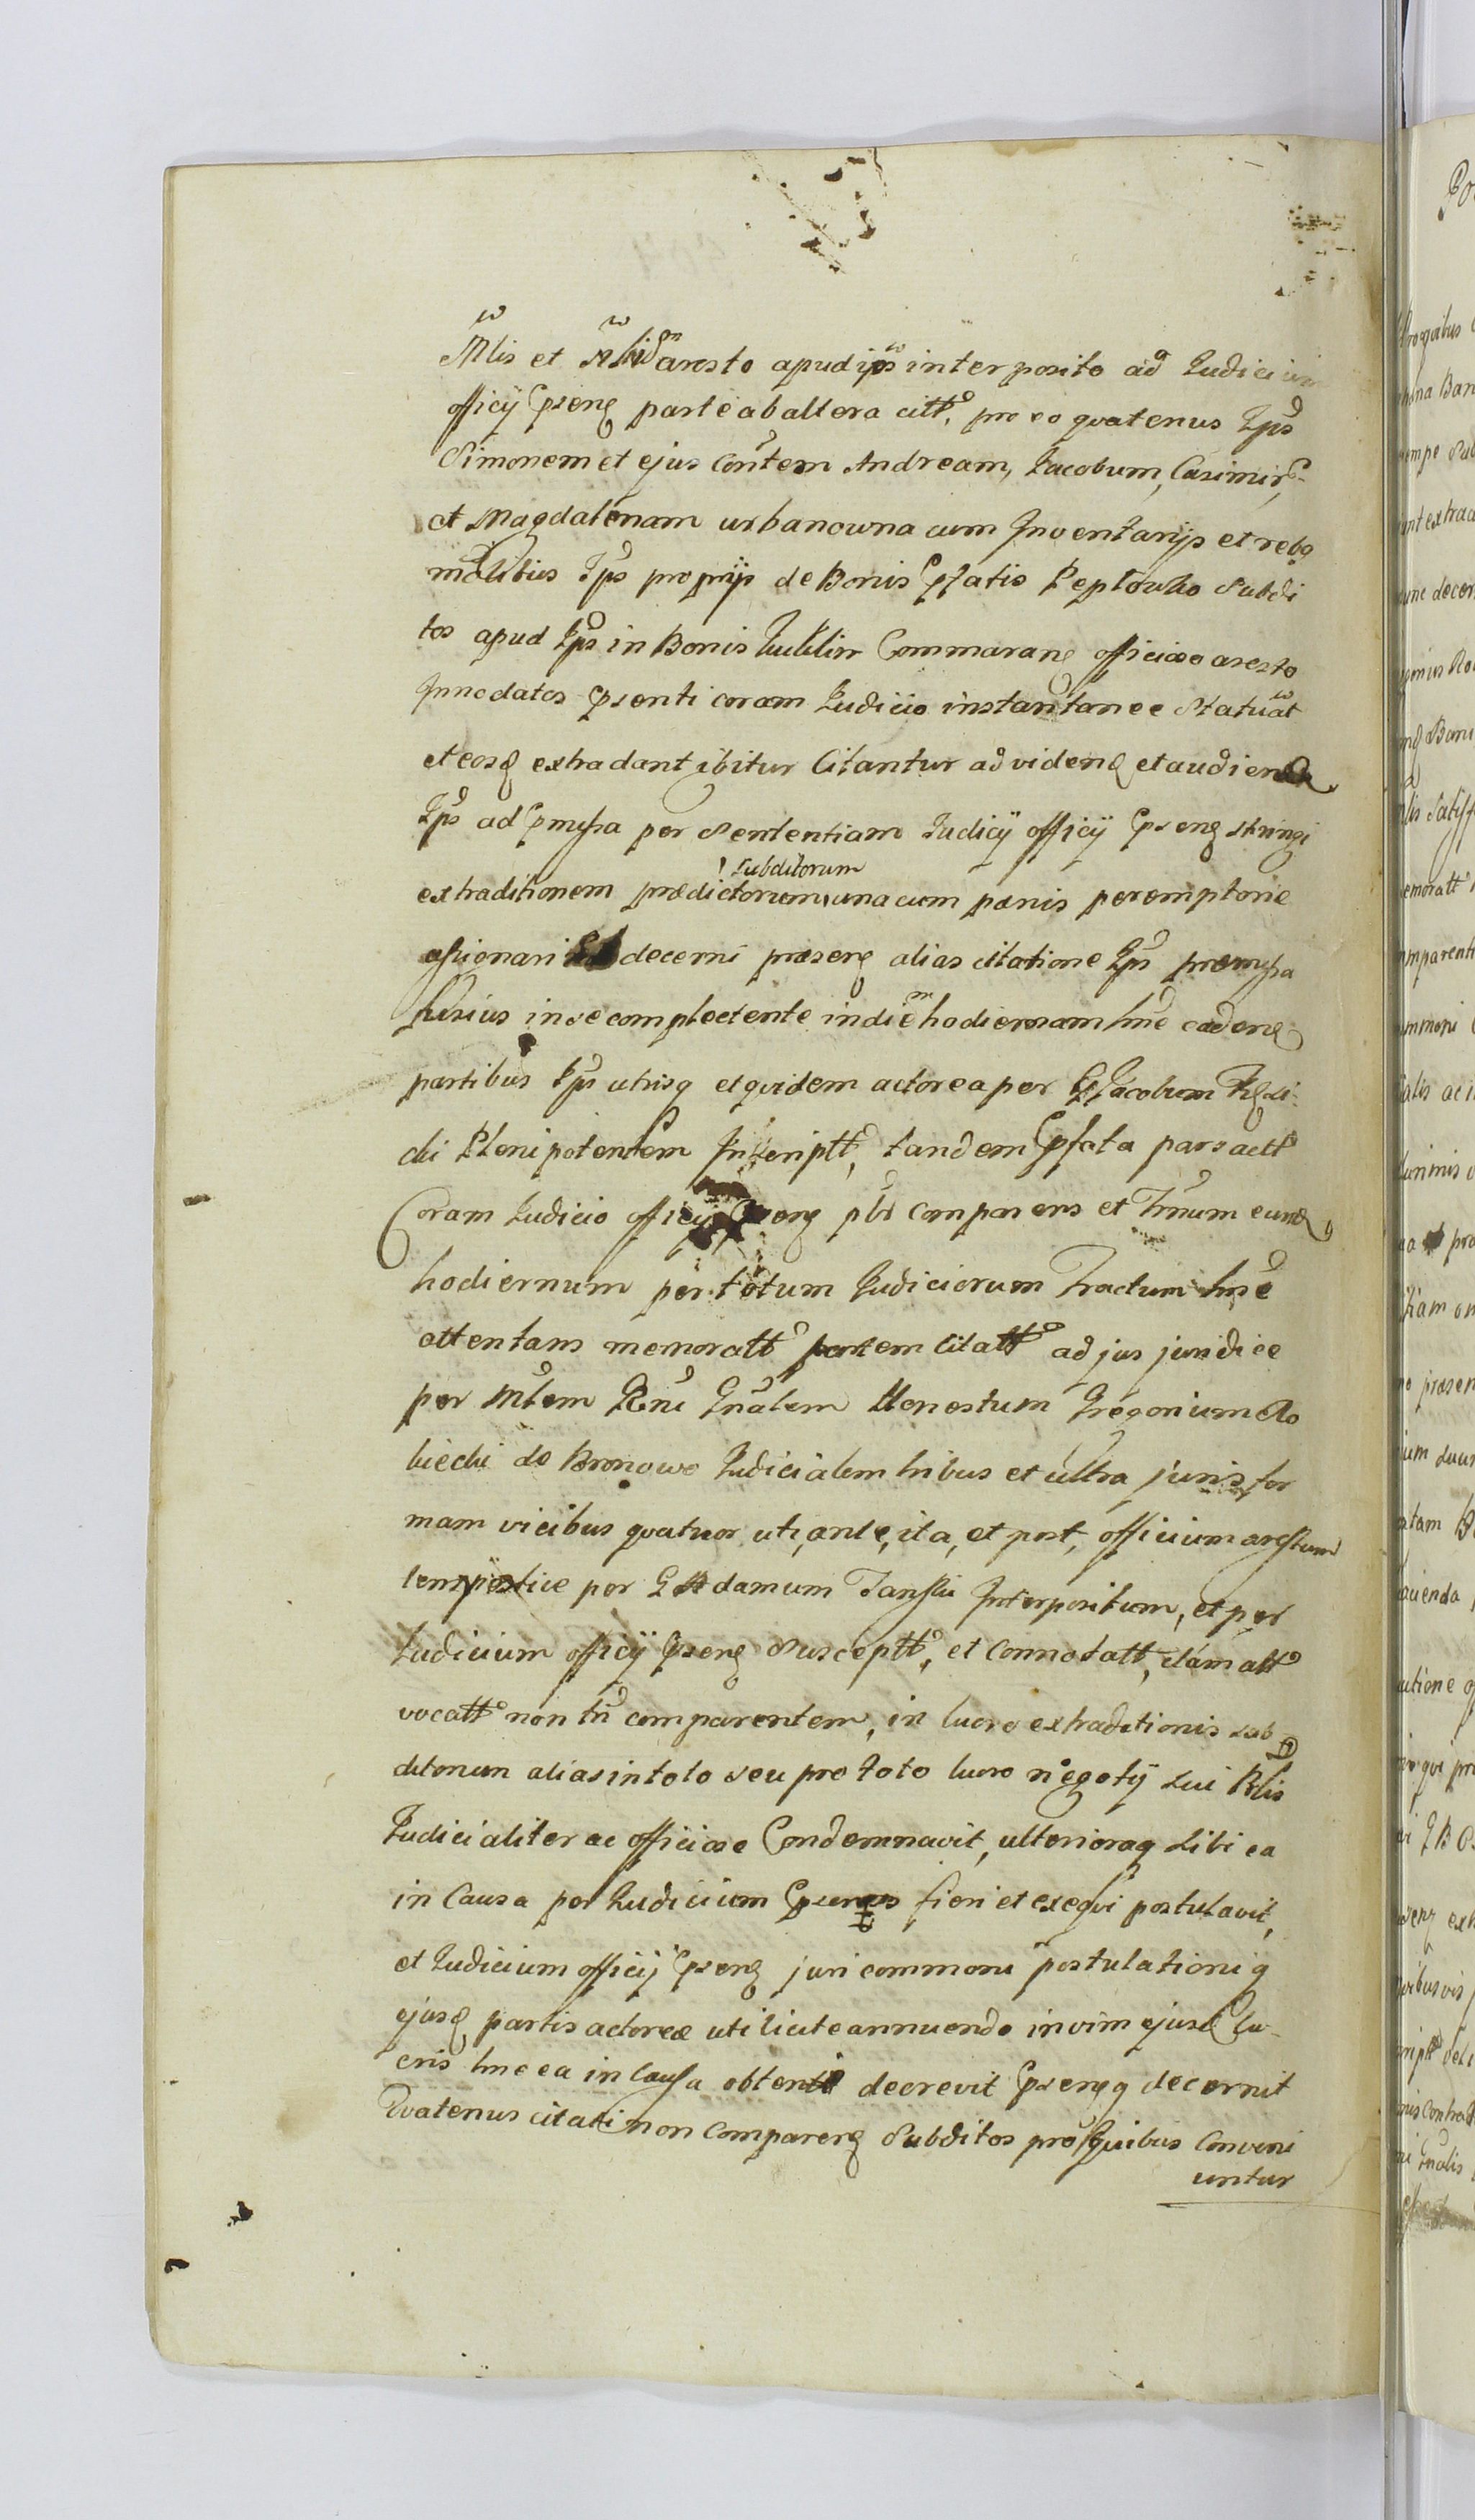 Mlis et aresto apud ips interposito ad Judicium
officÿ Psens parte ab altera citt, pro eo quatenus Ips
Simonem et ejus Contem Andream, Jacobum, Casimir,
et Magdalenam urbanowna cum Inventarÿs et rebq
molibus Ips proprÿs de Bonis Pfatis Peplowko Subdi
tos apud Ips in Bonis Lublin Commarans officiose aresto
Innodatos Psenti coram Judicio instantanee Statuat
et eosq extradant ibitur Citantur ad videnq et audiend
Ips ad Pmissa per Sententiam Judicÿ officÿ Psens stringi
extraditionem prædictorum subditorum una cum pænis peremptorie
assignari decerni præsens alias citatione Ips præmissa
fusius in se complectente in diem hodiernam hne cadens
partibus Ips utrisq et quidem actorea per G Jacobum
cki Plenipotentem Inscriptt, tandem Pfata pars actt
Coram Judicio officÿ Psens pbt comparens et Trnum eund
hodiernum per totum Judiciorum Tractum hne
attentans memoratt partem Citatt ad jus juridice
per Mtem Rni Gnalem Honestum Gregorium Ro
biecki de Bronowo Judicialem tribus et ultra juris for
mam vicibus quatuor uti, ante, ita, et post, officium arestum
tempestive per G Adamum Janski Interpositum, et per
Judicium officÿ Psens Susceptt, et Connotatt, clamatt
vocatt non tn comparentem, in lucro extraditionis sub
ditorum alias in toto seu pro toto lucro negotÿ sui Rlis
Judicialiter ac officiose Condemnavit, ulterioraq Sibi ea
in Causa per Judicium Psens fieri et exeqvi postulavit,
et Judicium officÿ Psens juri communi postulationi q
ejusd partis actoreæ uti licite annuendo in vim ejusd Lu
cris hne ea in Causa obtenti decrevit Psensq decernit
Quatenus citati non comparens Subditos pro quibus Conveni
untur